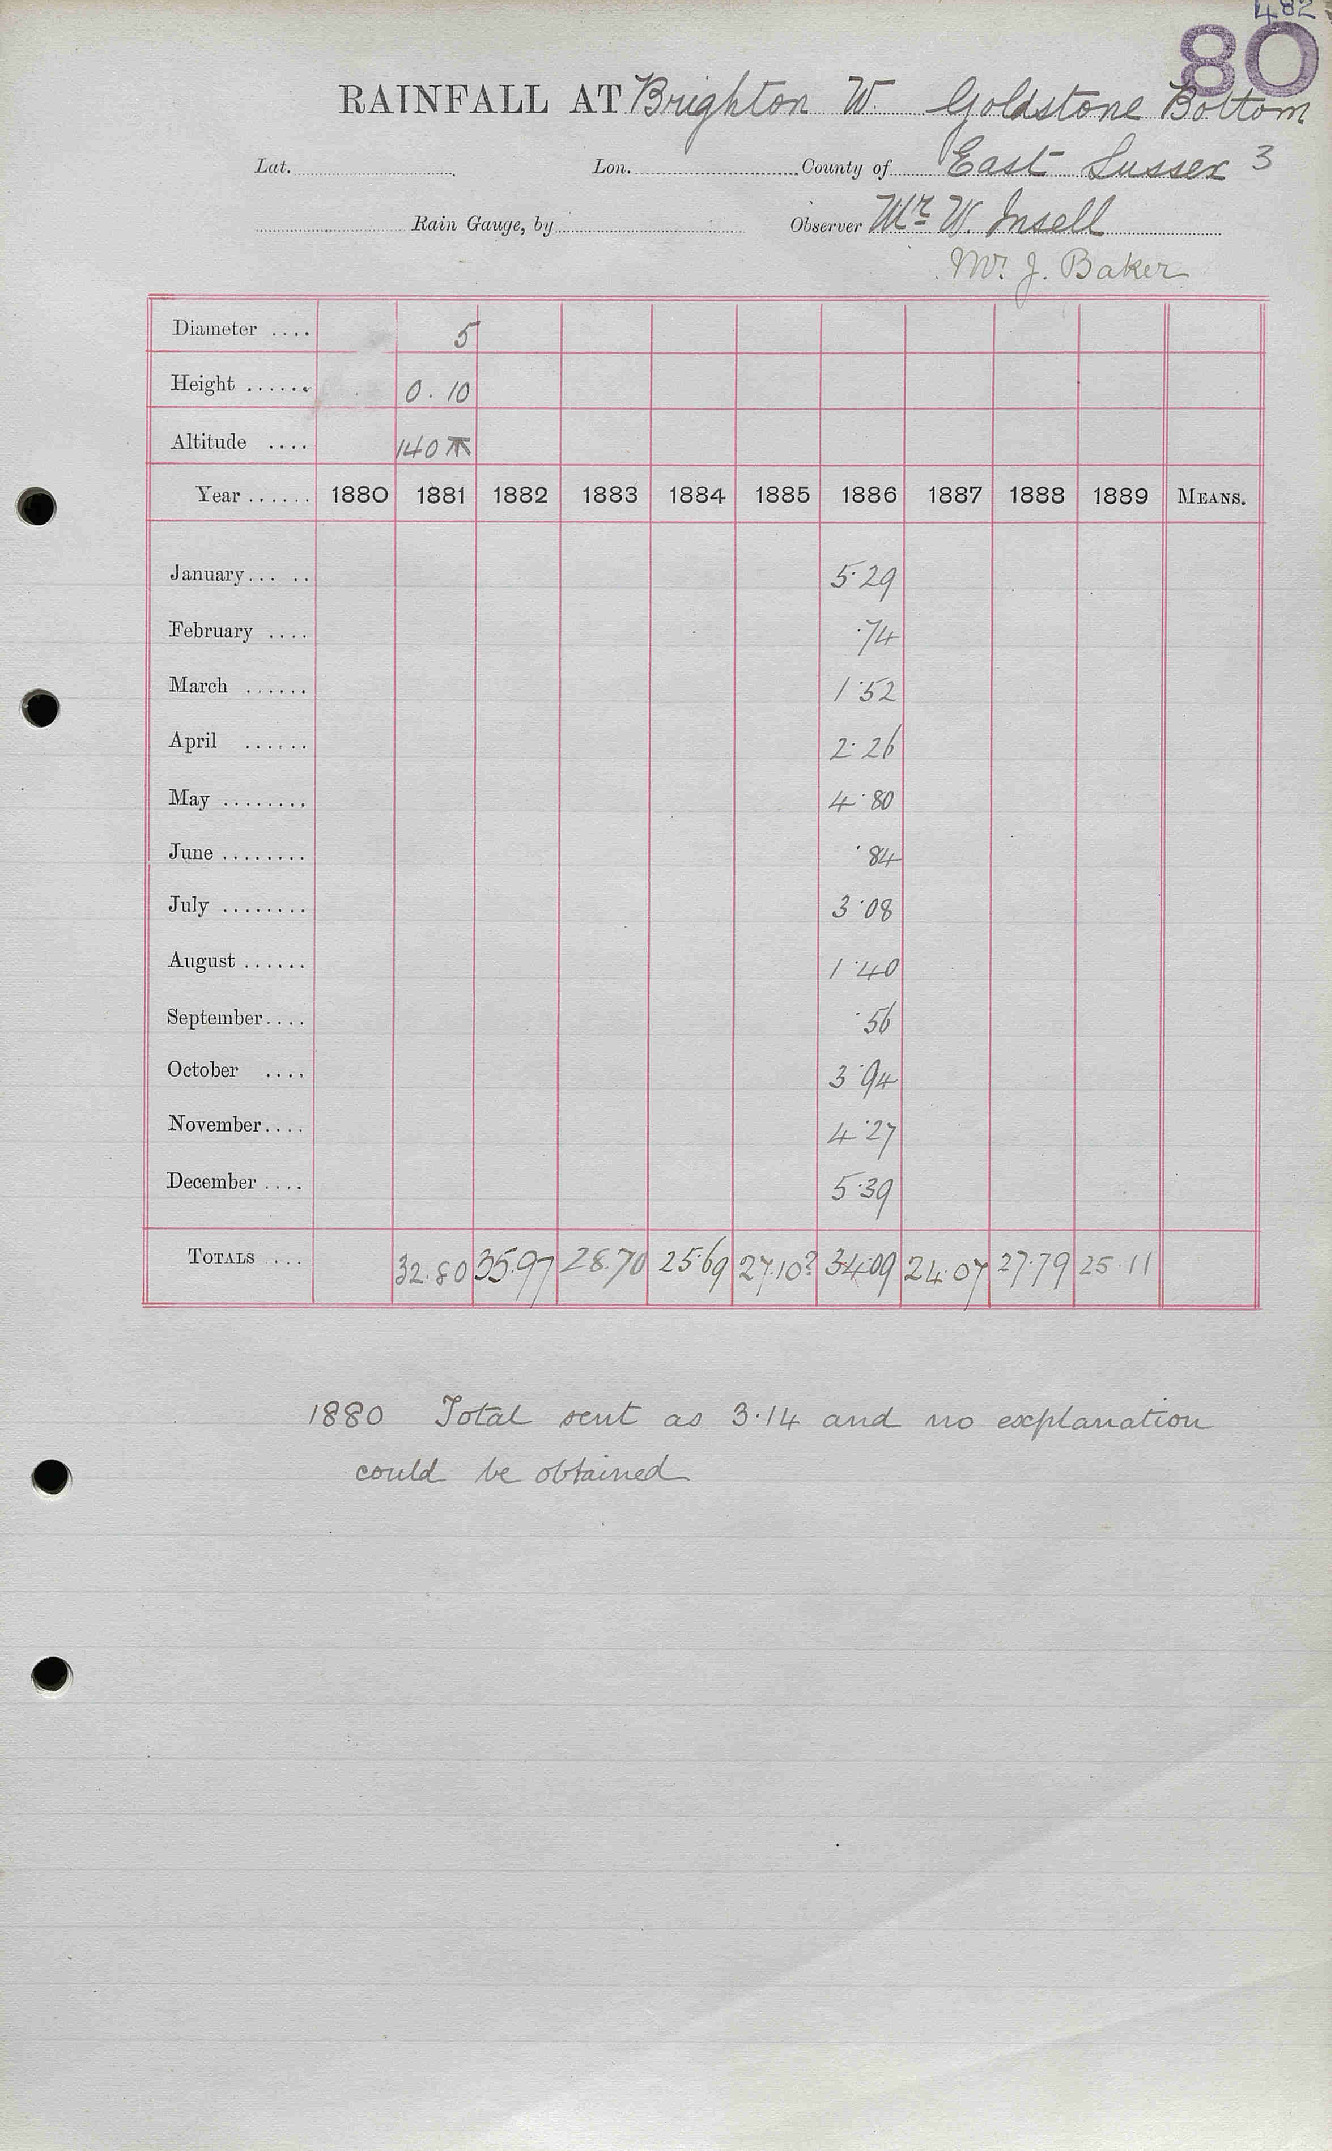 482
80
RAINFALL AT Brighton W. Goldstone Bottom
Lat. Lon. County of East Sussex 3
Rain Gauge, by Observer Mr. W. Insell
Mr. J. Baker
Diameter .... 5
Height ...... 0.10
Altitude .... 140
Year ...... 1880 1881 1882 1883 1884 1885 1886 1887 1888 1889 MEANS.
January... .. 5.29
February .... .74
March ...... 1.52
April ...... 2.26
May ........ 4.80
June ........ .84
July ........ 3.08
August ...... 1.40
September.... .56
October .... 3.94
November.... 4.27
December .... 5.39
TOTALS ... 32.80 35.97 28.70 25.69 27.10? 34.09 24.07 27.79 25.11
1880 Total sent as 3.14 and no explanation
could be obtained